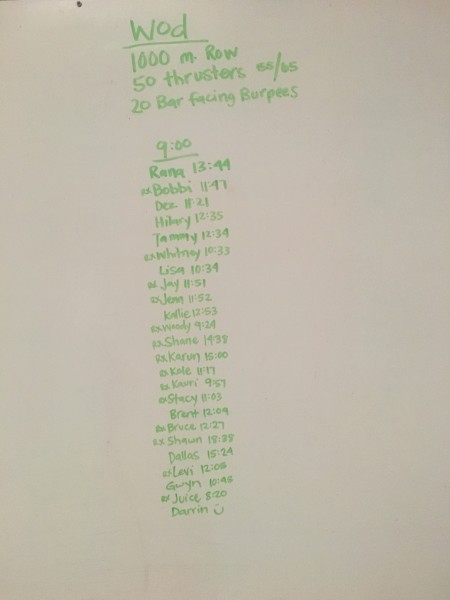 Wod
1000 m. Row
50 thrusters 55/65
20 Bar facing Burpees
9:00
Rana 13:44
rx Bobbi 11:47
Dez 11:21
Hilary 12:35
Tammy 12:34
rx Whitney 10:33
Lisa 10:34
rx Jay 11:51
rx Jenn 11:52
Kallie 12:53
rx Woody 9:24
rx Shane 14:38
rx Karun 15:00
rx Kole 11:17
rx Kauri 9:57
rx Stacy 11:03
Brent 12:09
rx Bruce 12:27
rx Shawn 18:38
Dallas 15:24
rx Levi 12:05
Gwyn 10:45
rx Juice 8:20
Darrin